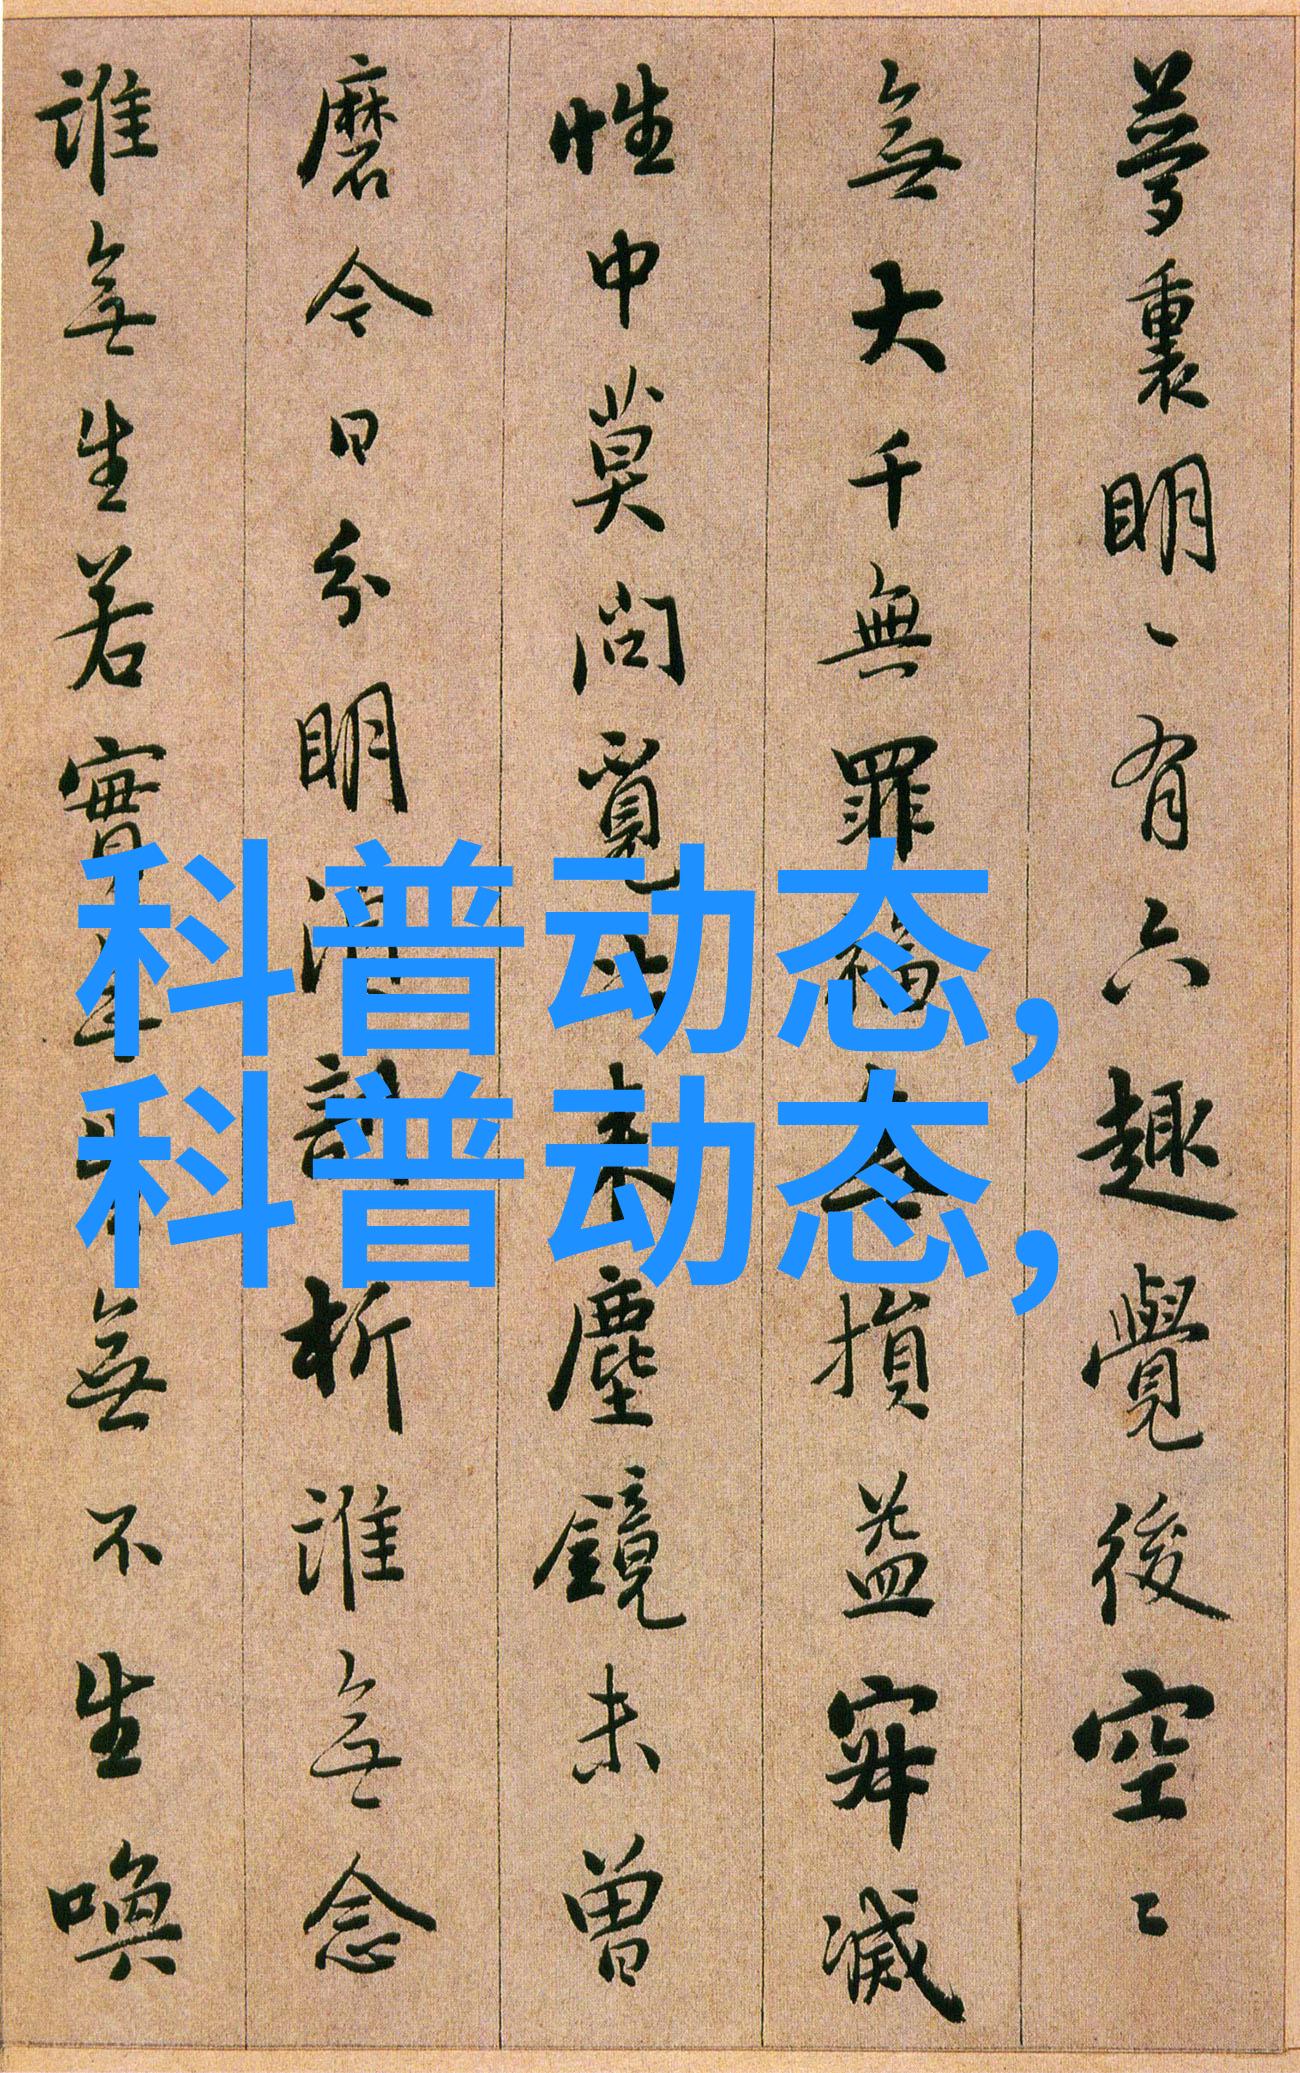 夢裏明〻有六趣覺後空〻
無大千無罪福損益寂滅
性中莫問覓來塵鏡未曾
磨今日分明析誰無念
誰無生若實無不生喚
科普动态,
科普动态,